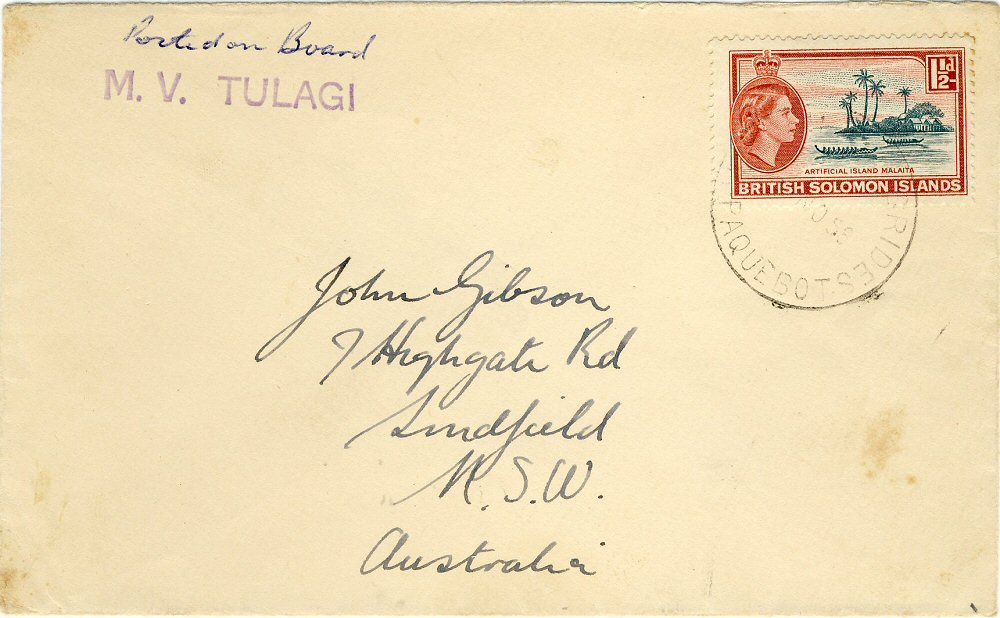 Posted on Board
M. V. TULAGI
1½d
ARTIFICIAL ISLAND MALAITA
BRITISH SOLOMON ISLANDS
RIDES
PAQUEBOTS
John Gibson
7 Highgate Rd
Lindfield
N.S.W.
Australia